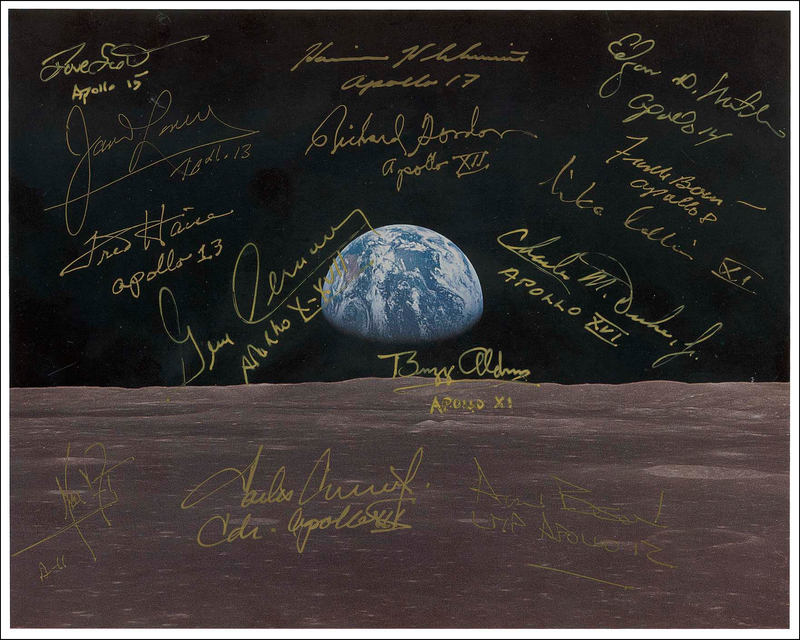 Dave Scott
Apollo 15
Harrison H Schmitt
Apollo 17
Edgar D. Mitchell
Apollo 14
James Lovell
Apollo 13
Richard Gordon
Apollo XII
Frank Borman
Apollo 8
Mike Collins
XI
Fred Haise
Apollo 13
Gene Cernan
Apollo X-XVII
Charles M. Duke, Jr.
APOLLO XVI
Buzz Aldrin
APOLLO XI
Charles Conrad Jr.
Cdr. Apollo XII
Alan Bean
LMP APOLLO 12